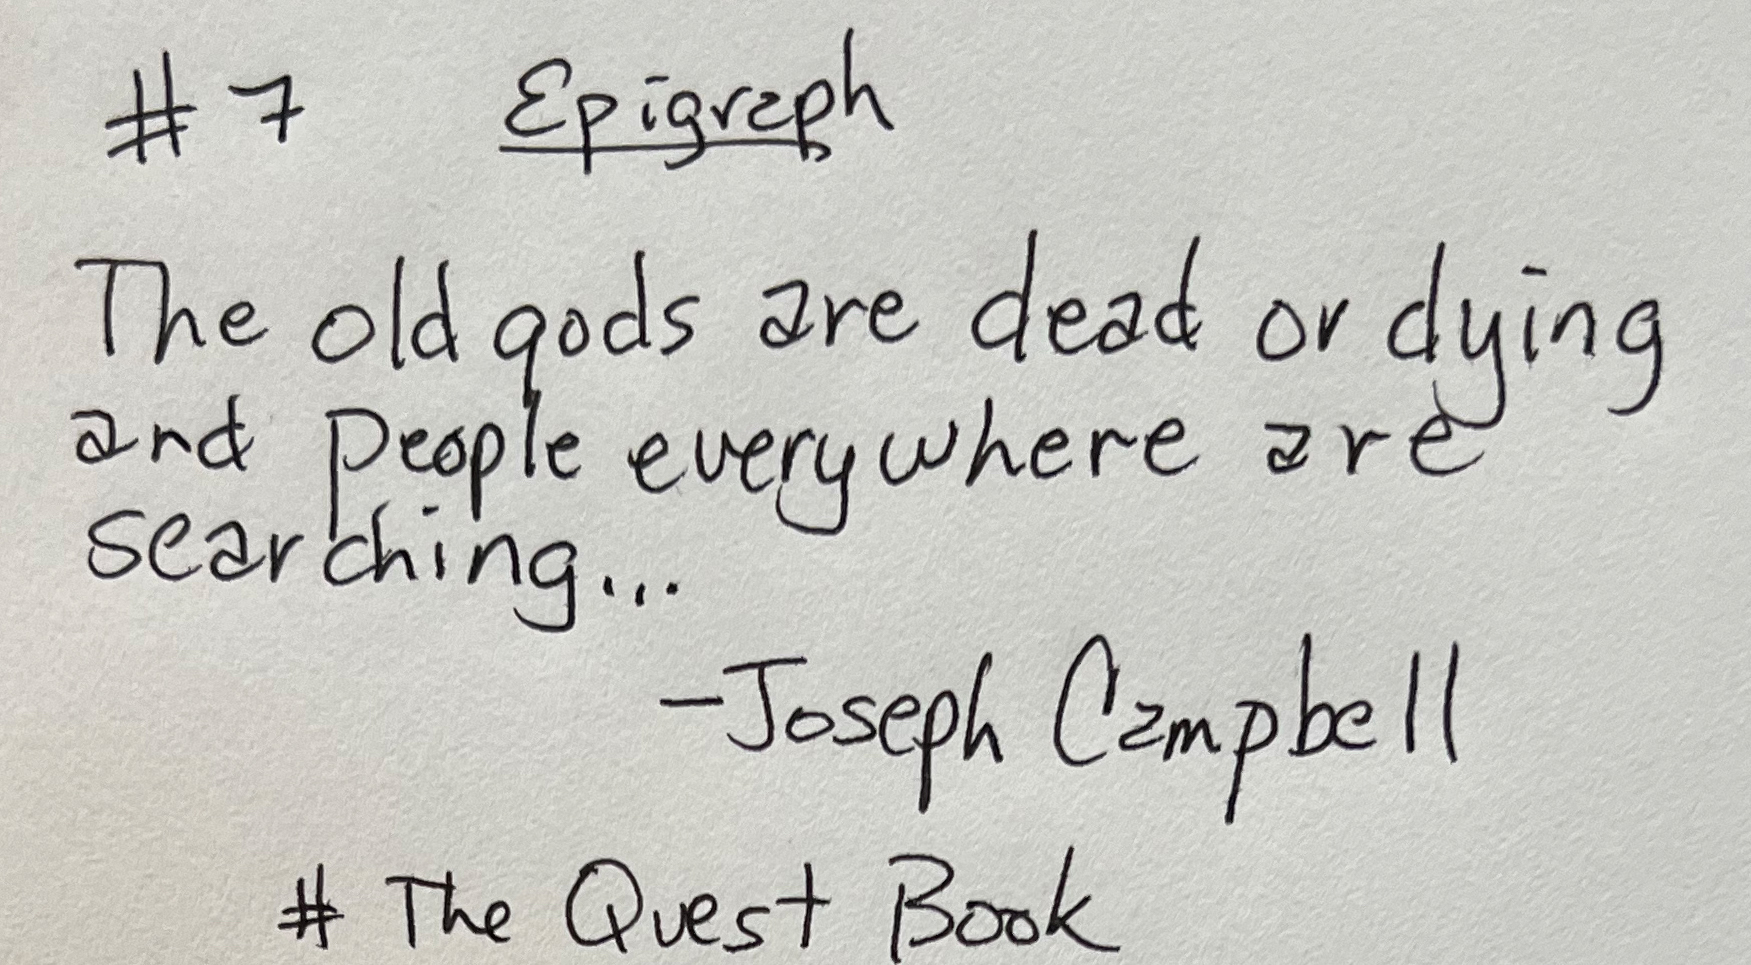 #7 Epigraph
The old gods are dead or dying
and people everywhere are
searching...
-Joseph Campbell
# The Quest Book